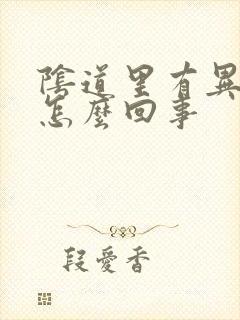 陰道里有異
怎麼回事
段愛香